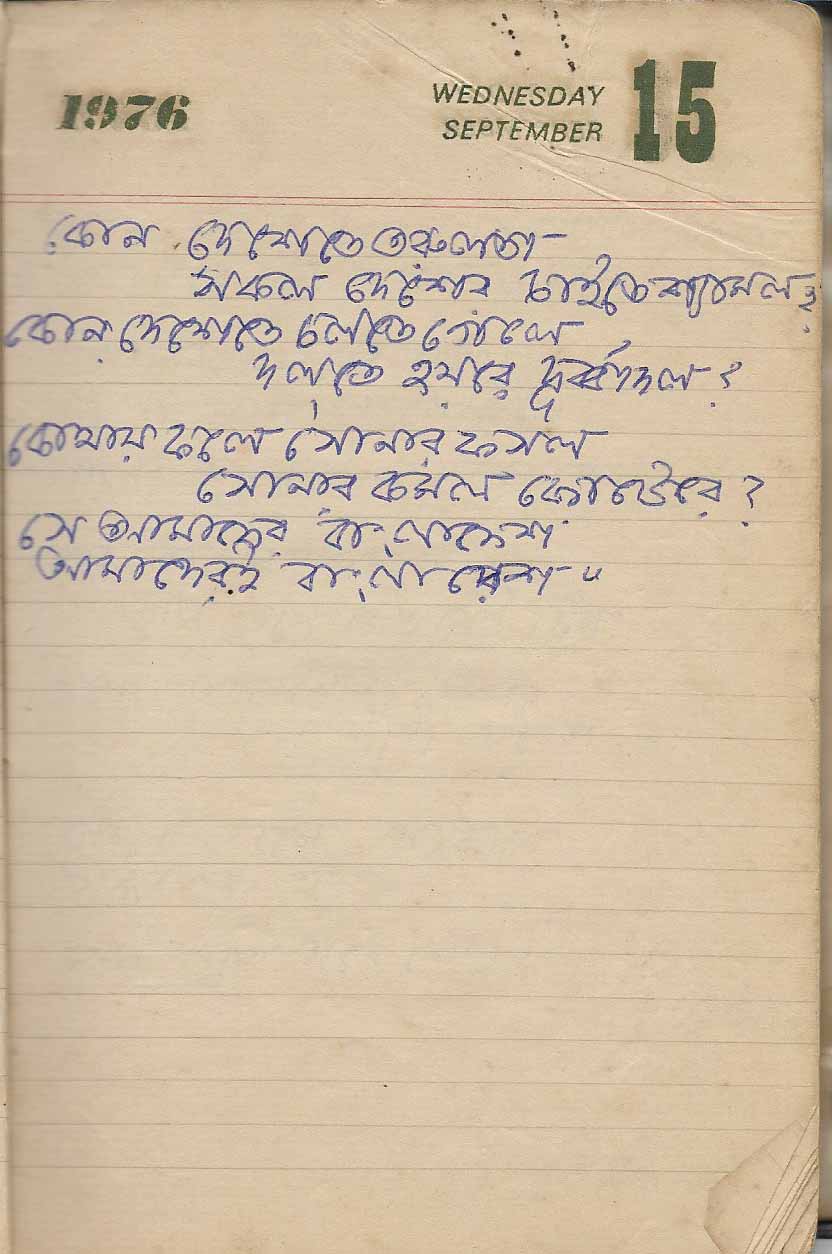 1976
WEDNESDAY
SEPTEMBER
15
কোন দেশেতে তরুলতা
সকল দেশের চাইতে শ্যামল?
কোন দেশেতে চলতে গেলে
দলতে হয়রে দূর্ব্বাদল?
কোথায় ফলে সোনার ফসল
সোনার কমল ফোটেরে?
সে আমাদের বাংলাদেশ
আমাদেরই বাংলাদেশ "